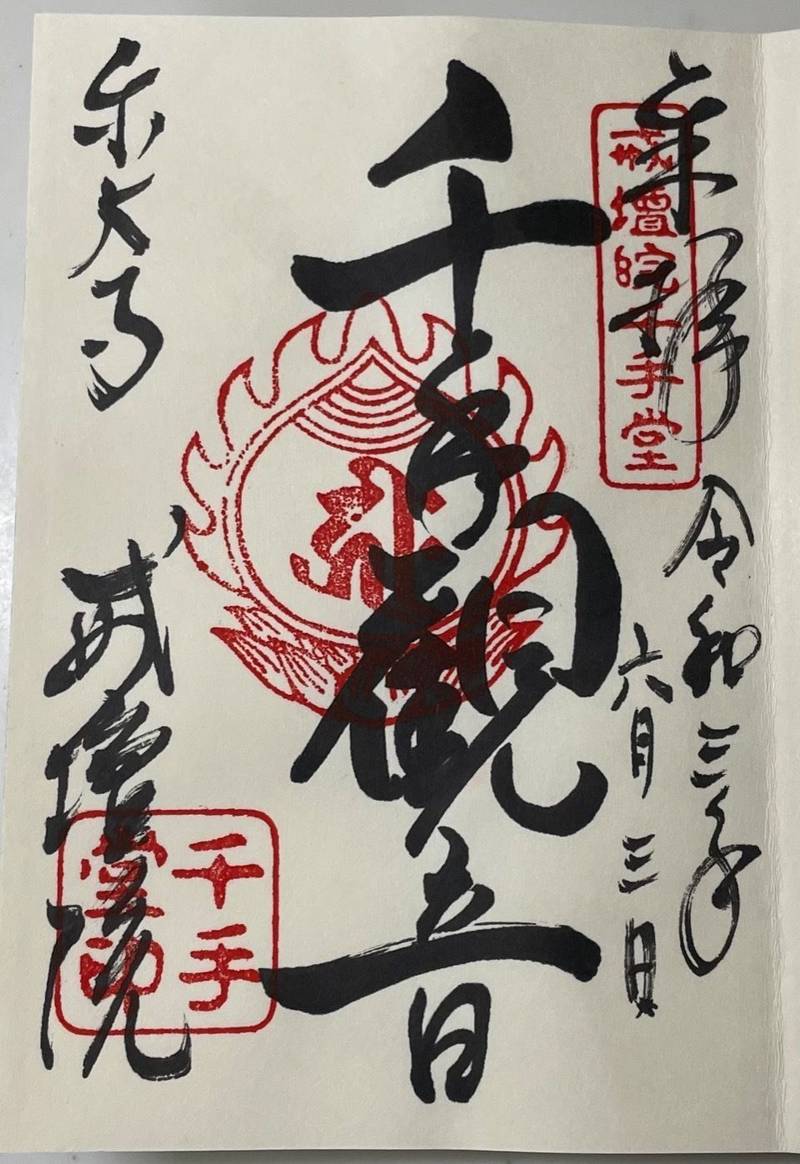 来拝
令和三年
六月三日
戒壇院千手堂
千手観音
東大寺
戒壇院
千手
堂印